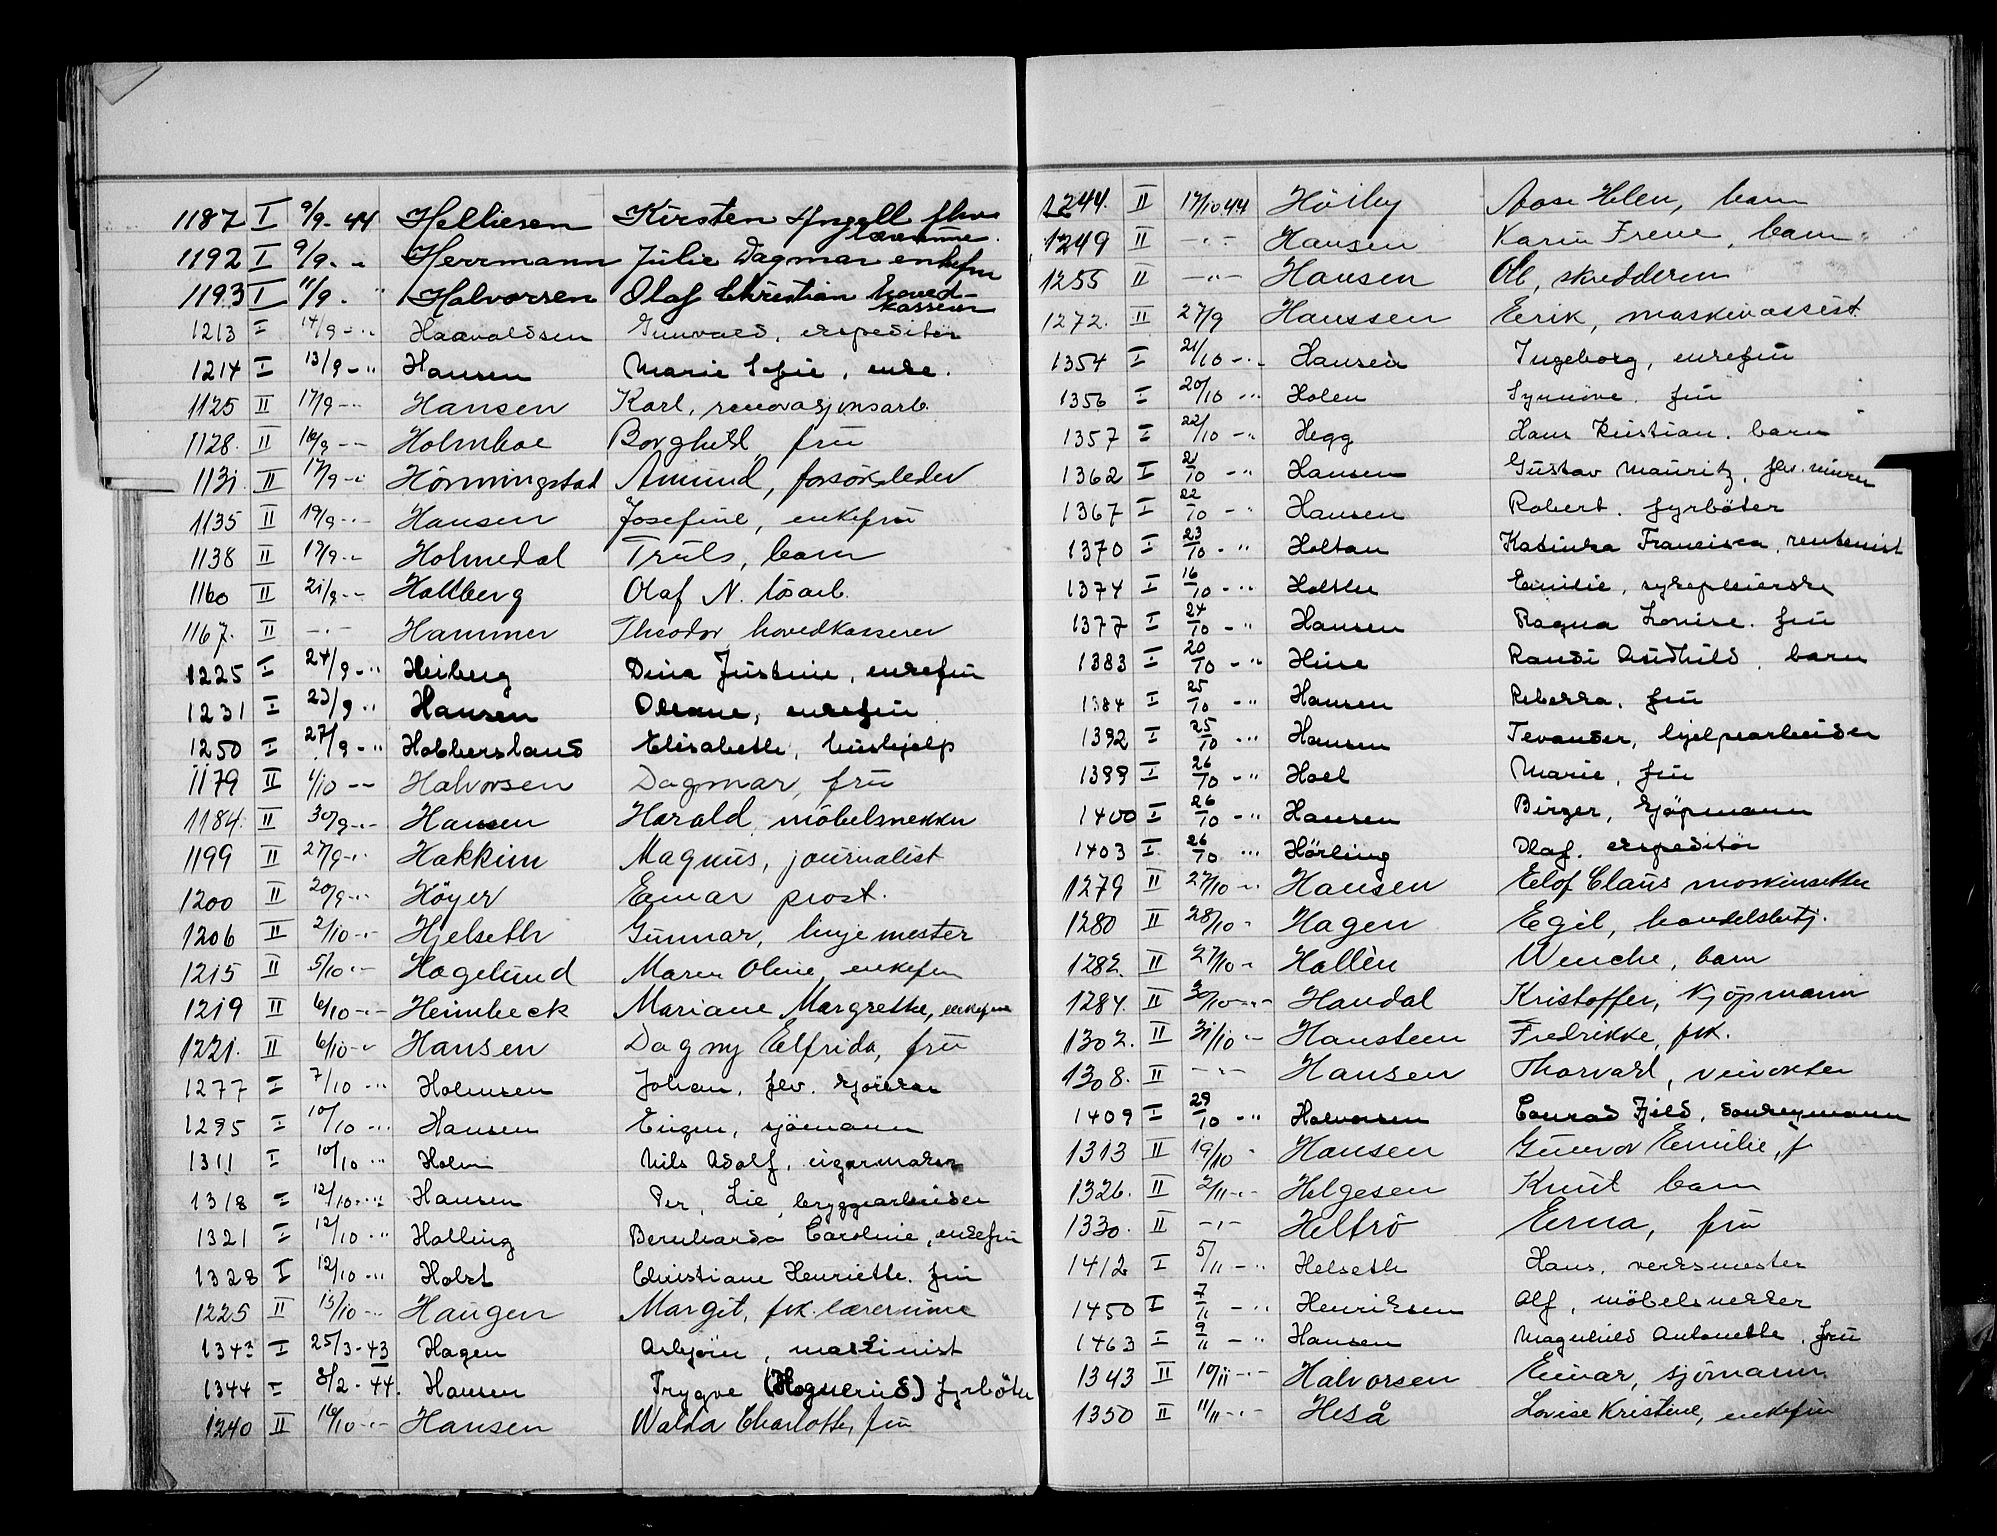 1187 I 9/9-44 Helliesen Kirsten Ingell flw
lærerinne.
1192 I 9/9- " Herrmann Julie Dagmar enkefru
1193 I 11/9- " Halvorsen Olaf Christian hoved-
kasserer
1213 I 14/9-" Haavaldsen Gunvald, expeditör
1214 I 13/9-" Hansen Marie Sofie, enke.
1125 II 17/9-" Hansen Karl, renovasjonsarb.
1128. II 16/9-" Holmboe Borghild, fru
1131 II 17/9-" Hörmingstad Amund, forsörsleder
1135 II 19/9-" Hansen Josefine, enkefru
1138 II 19/9-" Holmedal Truls, barn
1160 II 21/9-" Hallberg Olaf N. lösarb.
1167. II -"- Hammer Theodor hovedkasserer
1225 I 24/9-" Heiberg Dina Justine, enkefru
1231 I 23/9-" Hansen Oleane, enkefru
1250 I 27/9-" Hobbersland Elisabeth, hushjelp
1179 II 1/10-" Halvorsen Dagmar, fru
1184. II 30/9-" Hansen Harald, möbelsnekker
1199 II 27/9-" Hakkim Magnus, journalist
1200 II 20/9-" Höyer Einar prost.
1206 II 2/10-" Hjelseth Gunnar, linjemester
1215 II 5/10-" Hagelund Maren Oline, enkefru
1219 II 6/10-" Heimbeck Mariane Margrethe, enkefrue
1221. II 6/10-" Hansen Dagny Elfrida, fru
1277 I 7/10-" Holmsen Johan, flv. kjörekar
1295 I 10/10-" Hansen Eugen, sjömann
1311 I 10/10-" Holm Nils Adolf, cigarmaker
1318 I 12/10-" Hansen Per, Lie, bryggearbeider
1321 I 12/10-" Holling Bernharda Caroline, enkefru
1328 I 12/10-" Holst Christiane Henriette, fru
1225 II 13/10-" Haugen Margit, frk. lærerinne
1343 I 25/3-43 Hagen Asbjörn, maskinist
1344 I 8/2-44. Hansen Trygve (Hognerud) fyrböter
1240 II 16/10-" Hansen Walda Charlotte, fru
1244. II 17/10 44 Höiby Aase Helen, barn
1249 II -"- Hansen Karin Irene, barn
1255 II -"- Hansen Ole, skredderm
1272. II 27/9 Hanssen Eerik, maskinassist.
1354 I 21/10-" Hansen Ingeborg, enkefru
1356 I 20/10 " Holen Synnöve, fru
1357 I 22/10-" Hegg Hans Kristian, barn
1362 I 21/10-" Hansen Gustav Mauritz, flv. murer
1367 I 22/10-" Hansen Robert, fyrböter
1370 I 23/10-" Holtan Katinka Francisca, rentenist
1374 I 16/10-" Holter Emilie, sykepleierske
1377 I 24/10-" Hansen Ragna Lovise, fru
1383 I 20/10-" Hise Randi Audhild, barn
1384 I 25/10-" Hansen Rebekka, fru
1392 I 25/10-" Hansen Tevander, hjelpearbeider
1399 I 26/10-" Hoel Marie, fru
1400 I 26/10-" Hansen Birger, kjöpmann
1403 I 26/10 " Hörling Olaf, expeditör
1279 II 27/10-" Hansen Eelof Claus maskinsetter
1280 II 28/10-" Hagen Egil, handelsbetj.
1282. II 27/10-" Hallèn Wenche, barn
1284. II 30/10-" Handal Kristoffer, kjöpmann
1302. II 31/10-" Hansteen Fredrikke, frk.
1308. II -"- Hansen Thorvald, veivokter
1409 I 29/10-" Halvorsen Conrad Fjeld, donkeymann
1313 II 19/10 " Hansen Gunvor Emilie, f
1326. II 2/11-" Helgesen Knut barn
1330. II -"- Heltrö Eerna, fru
1412 I 5/11-" Helseth Hans, verksmester
1450 I 7/11-" Henriksen Alf, möbelsnekker
1463 I 9/11-" Hansen Magnhild Antonette, fru
1343 II 10/11-" Halvorsen Einar, sjömann
1350 II 11/11-" Heså Lovise Kristine, enkefru